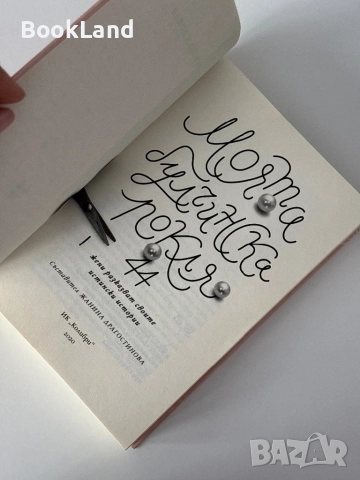 BookLand
Моята
булчинска
рокля
44
жени разказват своите
истински истории
Съставител ЖАНИНА ДРАГОСТИНОВА
ИК „Колибри“
2020
BAZAR
bg